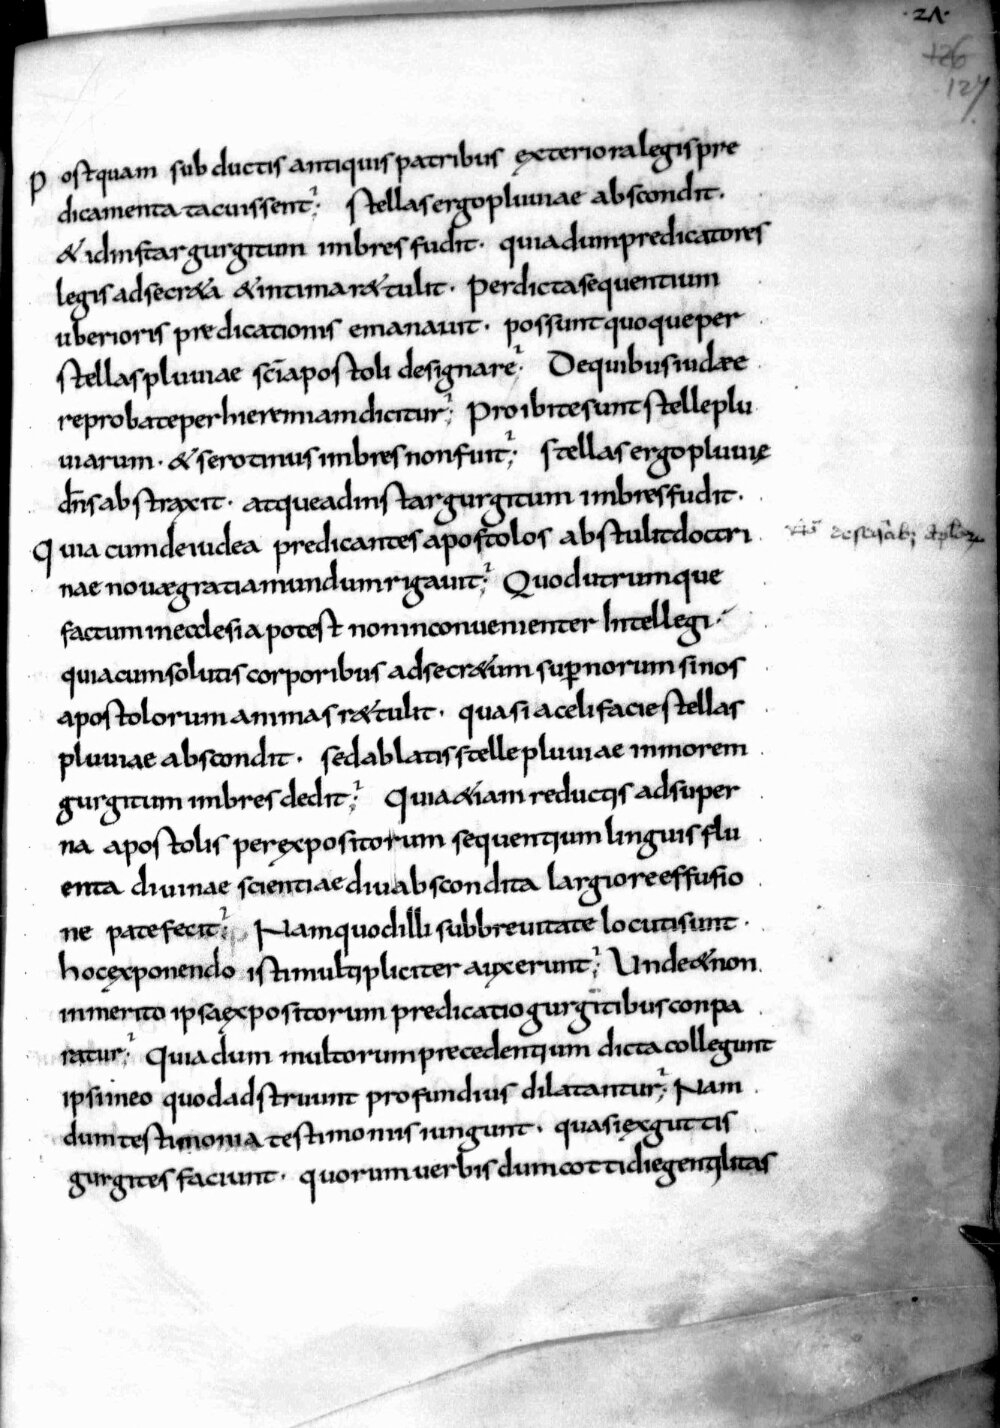 ·21·
126
127
Postquam sub ductis antiquis patribus exteriora legis pre
dicamenta tacuissent; stellas ergo pluviae abscondit·
& id instar gurgitum imbres fudit· quia dum predicatores
legis ad secr&a & intima r&tulit· per dicta sequentium
uberioris predicationis emanavit· possunt quoque per
stellas pluviae sc̄i apostoli designare; De quibus iudaee
reprobate per hieremiam dicitur; Proibite sunt stelle plu
viarum· & serotinus imbres non fuit; stellas ergo pluvię
dn̄s abstraxit· atque ad instar gurgitum imbres fudit·
Quia cum de iudea predicantes apostolos abstulit doctri
nae novae gratia mundum rigavit; Quod utrumque
factum in ecclesia potest non inconvenienter intellegi·
quia cum solutis corporibus ad secr&um supernorum sinos
apostolorum animas r&tulit· quasi a celi facie stellas
pluviae abscondit· sed ablatis stelle pluviae in morem
gurgitum imbres dedit; Quia &iam reductis ad super
na apostolis per expositorum sequentium linguis flu
enta divinae scientiae diu abscondita largiore effusio
ne patefecit; Nam quod illi sub brevitate locuti sunt·
hoc exponendo isti multipliciter auxerunt; Unde & non
inmerito ipsa expositorum predicatio gurgitibus conpa
ratur; Quia dum multorum precedentium dicta collegunt
ipsi in eo quod adstruunt profundius dilatantur; Nam
dum testimonia testimoniis iungunt· quasi ex guttis
gurgites faciunt· quorum verbis dum cottidie gentilitas